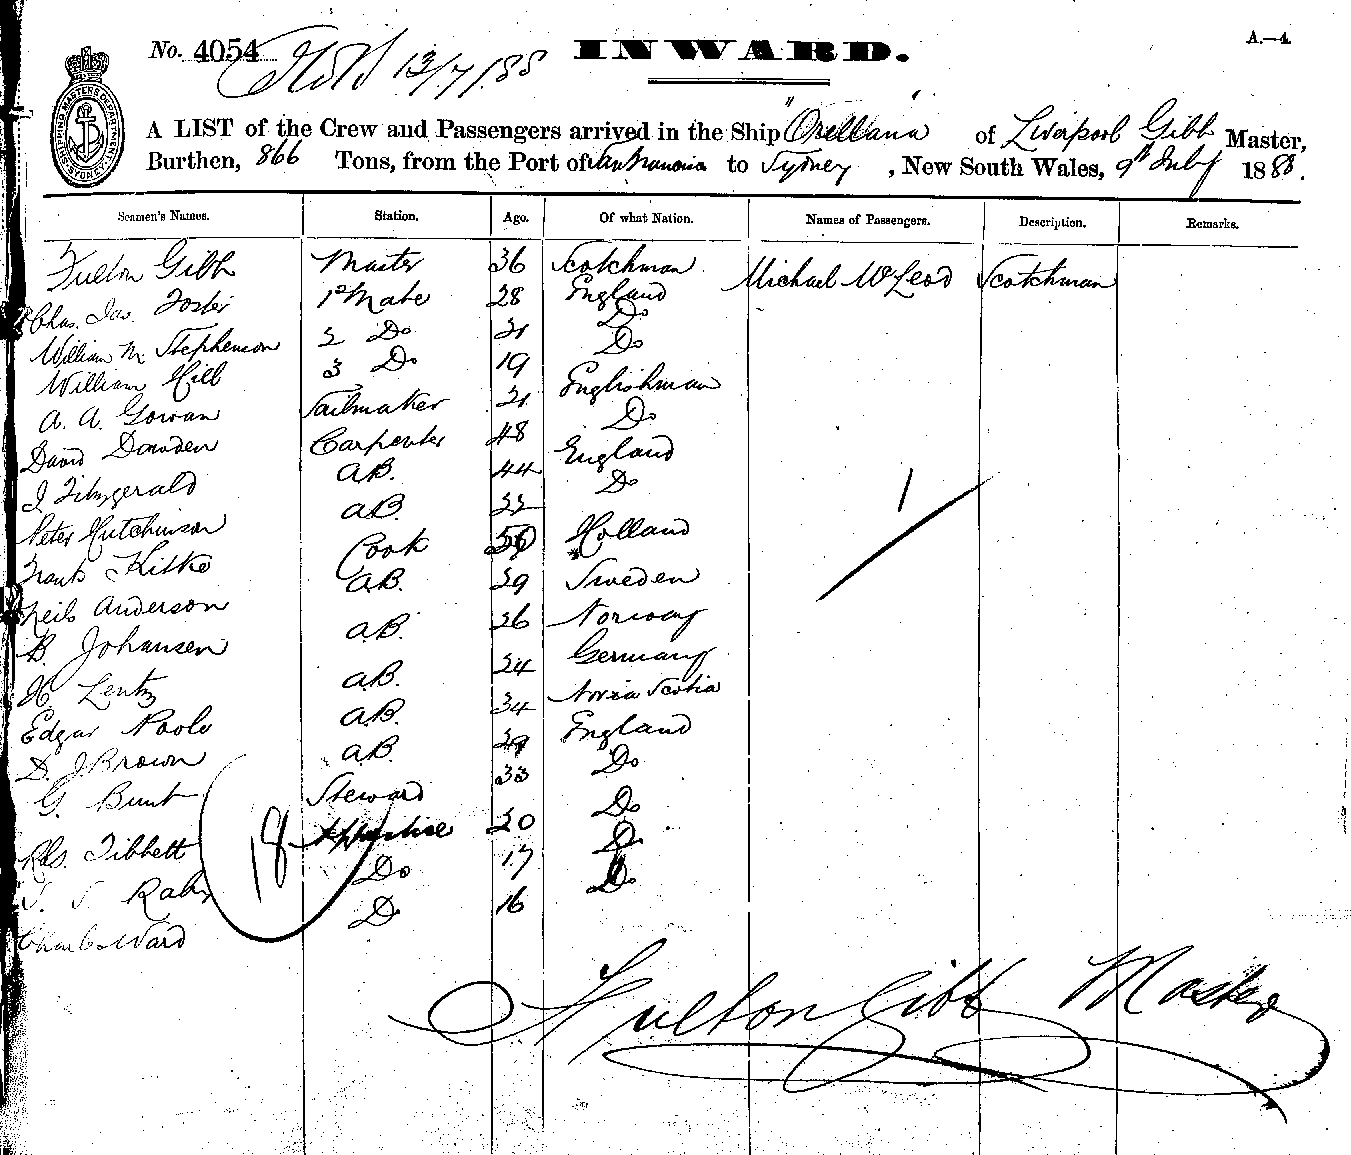 No. 4054 13/7/88 INWARD. A.—4.
SHIPPING MASTERS DEPARTMENT SYDNEY
A LIST of the Crew and Passengers arrived in the Ship "Orellana" of Liverpool Gibb Master,
Burthen, 866 Tons, from the Port of San Francisco to Sydney, New South Wales, 9th July 1888.
Seamen's Names. Station. Age. Of what Nation. Names of Passengers. Description. Remarks.
Fulton Gibb Master 36 Scotchman Michael McLeod Scotchman
Chas. Jas. Foster 1st Mate 28 England
William M. Stephenson 2 Do 21 Do
William Hill 3 Do 19 Do
A. A. Gowan Sailmaker 21 Englishman
David Dowden Carpenter 48 Do
J Fitzgerald A.B. 44 England
Peter Hutchinson A.B. 22 Do
Frank Kitke Cook Holland
Neils Anderson A.B. 29 Sweden
B. Johansen A.B. 26 Norway
H Lentz A.B. 24 Germany
Edgar Poole A.B. 34 Nova Scotia
D. J Brown A.B. England
G. Bunt Steward 33 Do
Chs. Tibbett Apprentice 20 Do
Do 17 Do
Charles Ward Do 16 Do
18
1
Fulton Gibb Master